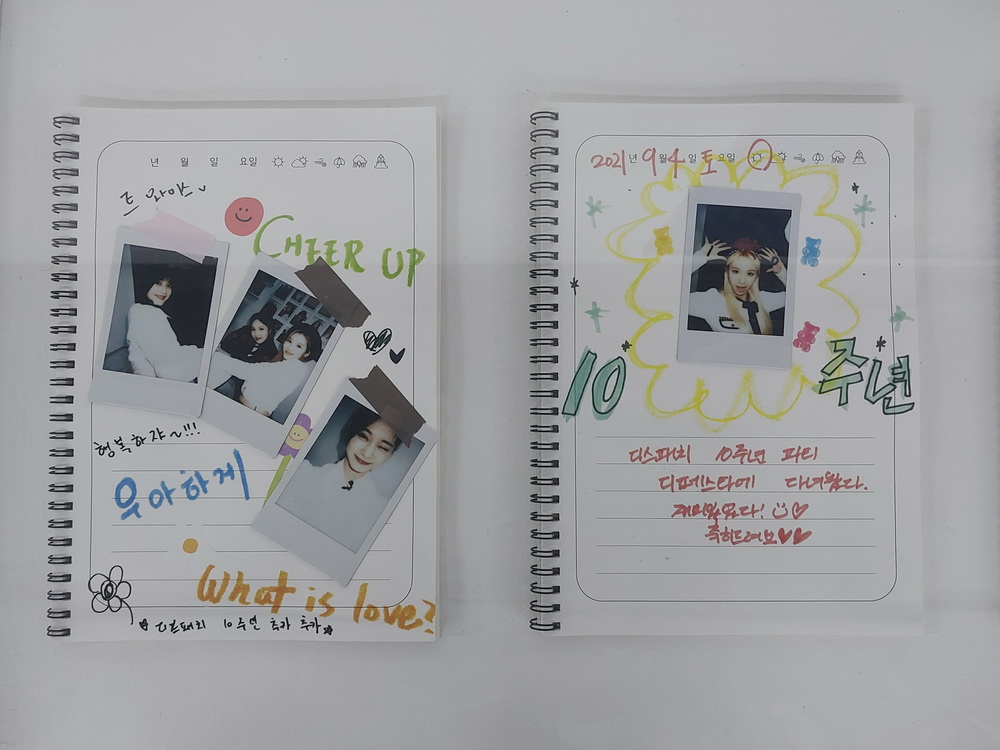 년 월 일 요일
트와이스
CHEER UP
행복하쟈~!!!
우아하게
What is love?
디스패치 10주년 축카 추카
2021년 9월 4일 토요일
10주년
디스패치 10주년 파티
디페스타에 다녀왔다.
재미있었다!
축하드려요